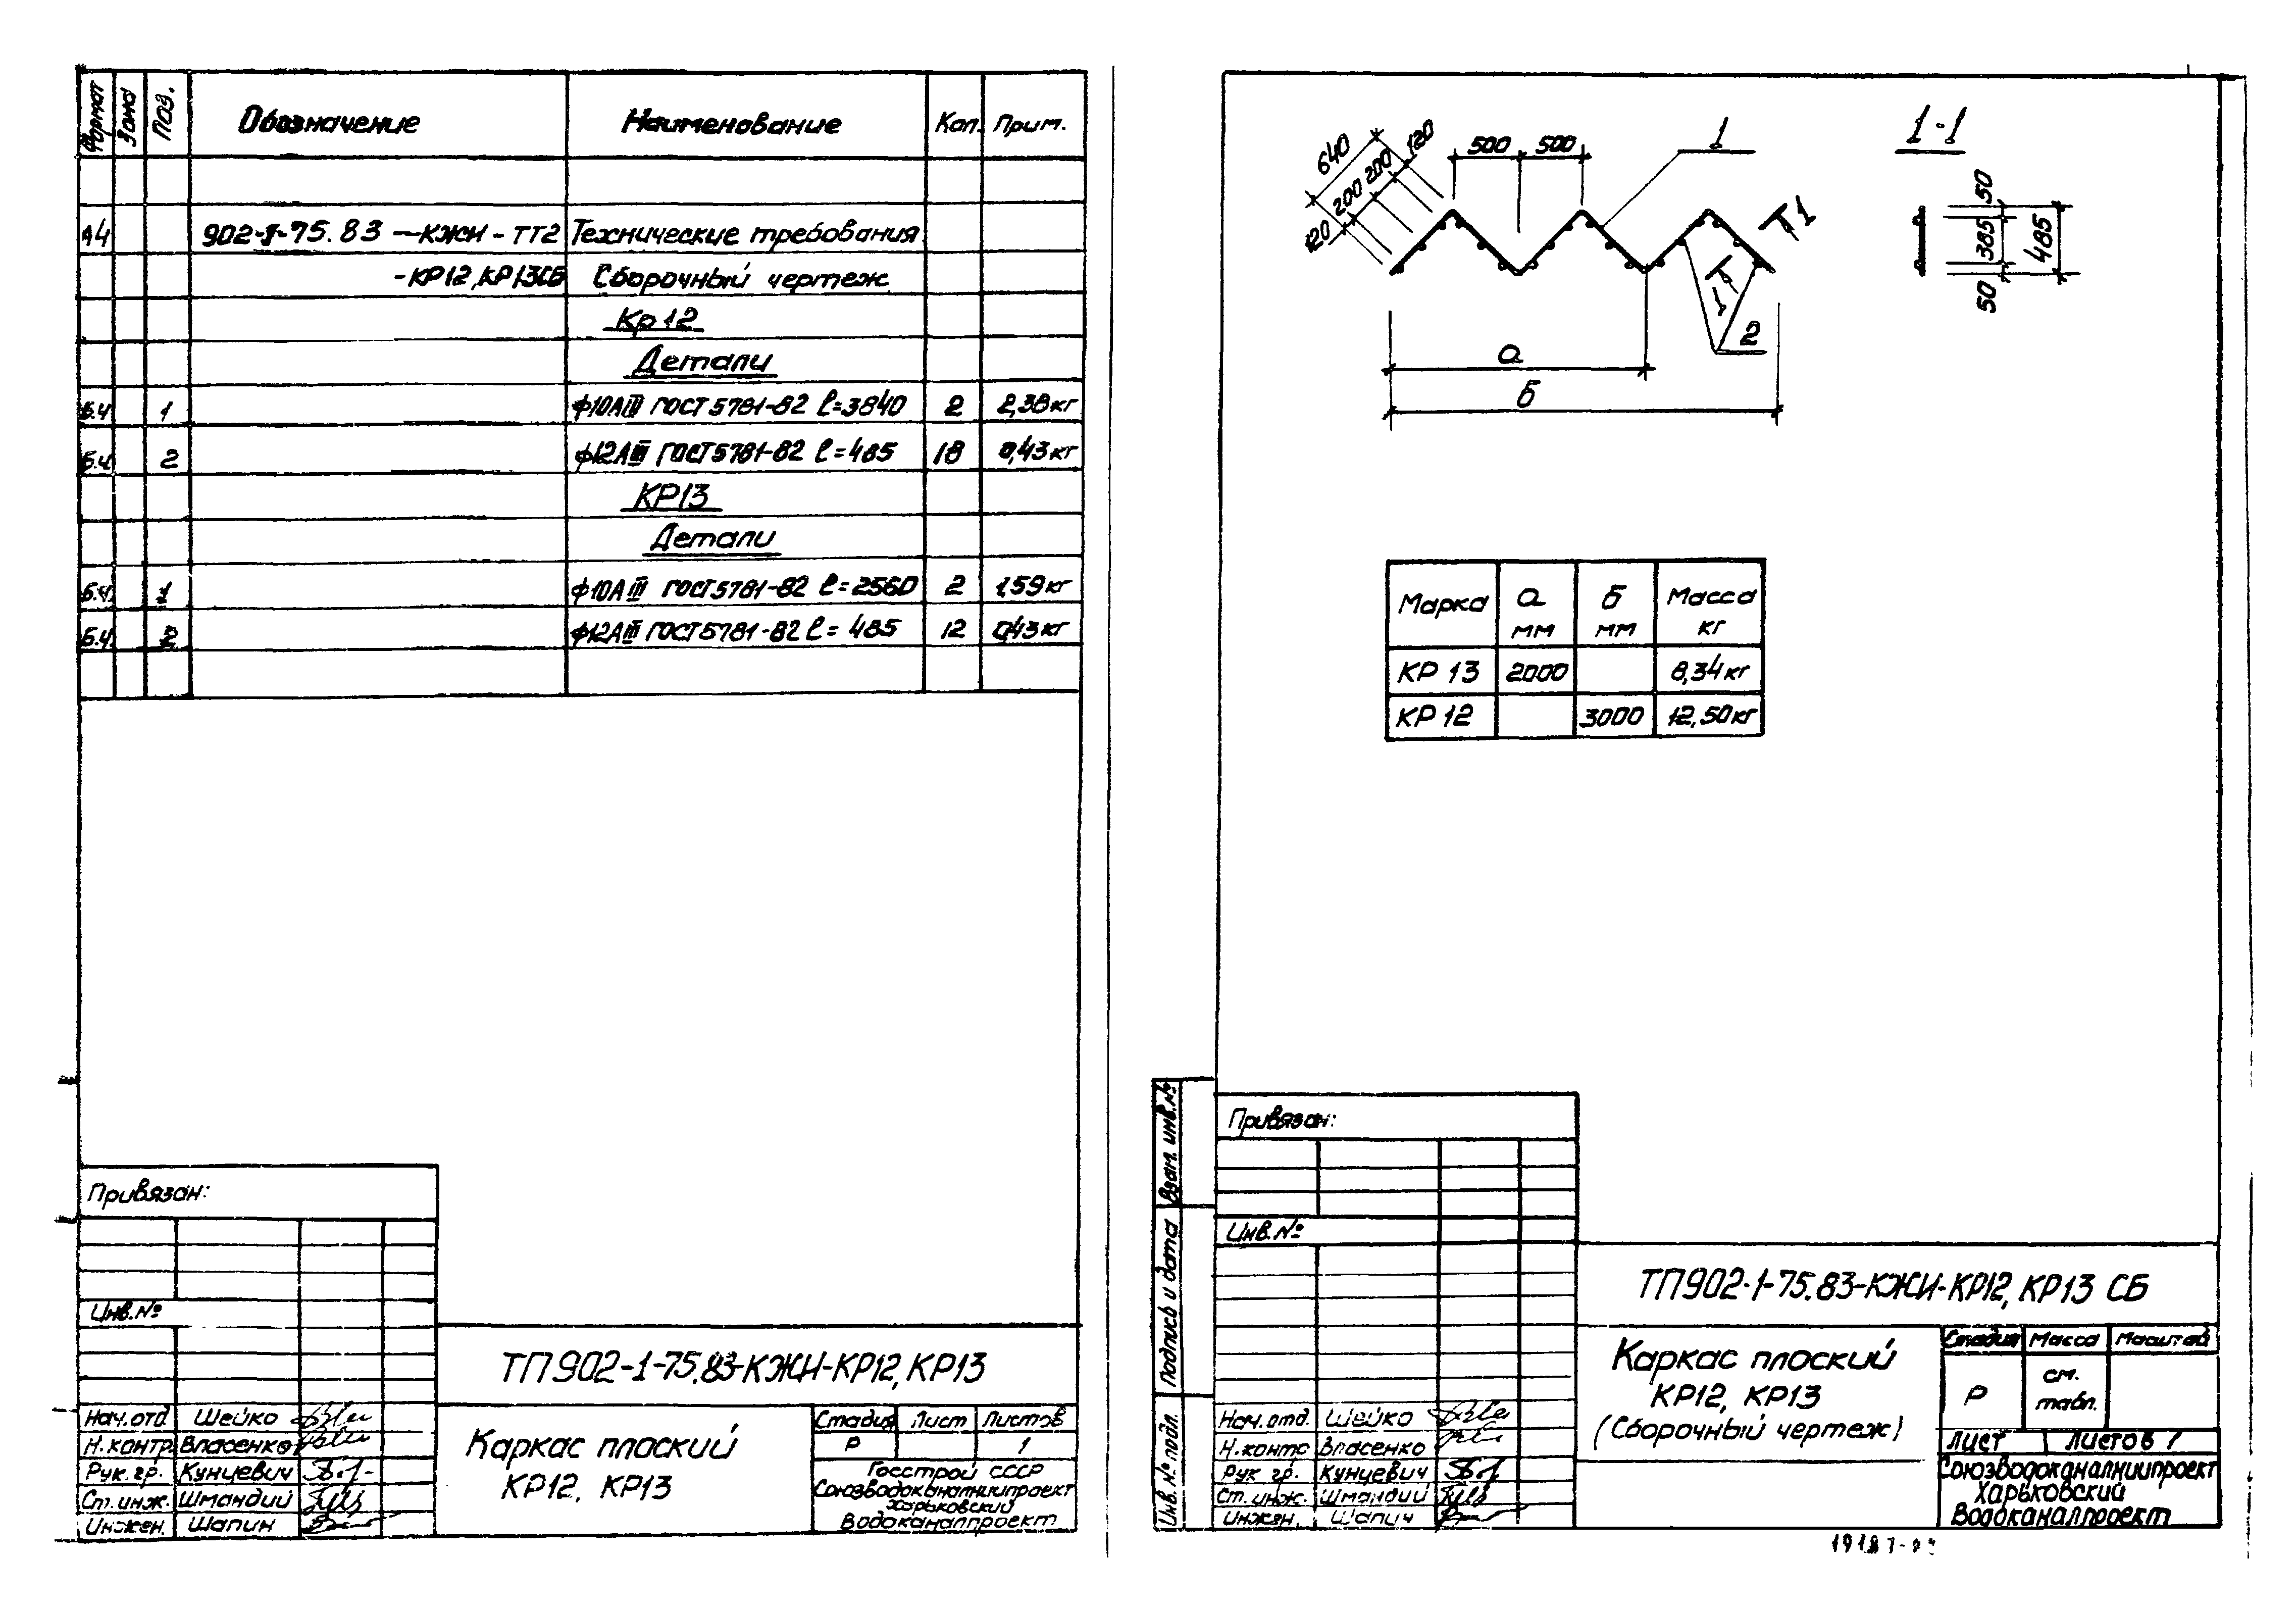 Формат Зона Поз. Обозначение Наименование Кол. Прим.
А4 902-1-75.83 -КЖИ - ТТ2 Технические требования
-КР12, КР13СБ Сборочный чертеж
Кр 12
Детали
Б.ч 1 ф10АIII ГОСТ 5781-82 ℓ=3840 2 2,38 кг
Б.ч. 2 ф12АIII ГОСТ 5781-82 ℓ=485 18 0,43 кг
КР13
Детали
Б.ч. 1 ф10АIII ГОСТ 5781-82 ℓ=2560 2 1,59 кг
Б.ч. 2 ф12АIII ГОСТ 5781-82 ℓ= 485 12 0,43 кг
Привязан:
Инв.№
ТП902-1-75.83-КЖИ-КР12, КР13
Нач.отд Шейко
Н.контр. Власенко
Рук. гр. Кунцевич
Ст. инж. Шмандий
Инжен. Шапин
Каркас плоский
КР12, КР13
Стадия Лист Листов
Р 1
Госстрой СССР
Союзводоканалниипроект
Харьковский
Водоканалпроект
1-1
640
120 200 200 120
500 500
1
1
1
2
а
б
50
385
50
485
Марка а мм б мм Масса кг
КР 13 2000 8,34 кг
КР 12 3000 12,50 кг
Взам. инв.№
Подпись и дата
Инв. № подл.
Привязан:
Инв.№
ТП902-1-75.83-КЖИ-КР12, КР13 СБ
Нач. отд. Шейко
Н.контр Власенко
Рук гр. Кунцевич
Ст. инж. Шмандий
Инжен. Шапин
Каркас плоский
КР12, КР13
(Сборочный чертеж)
Стадия Масса Масштаб
Р см. табл.
Лист Листов 1
Союзводоканалниипроект
Харьковский
Водоканалпроект